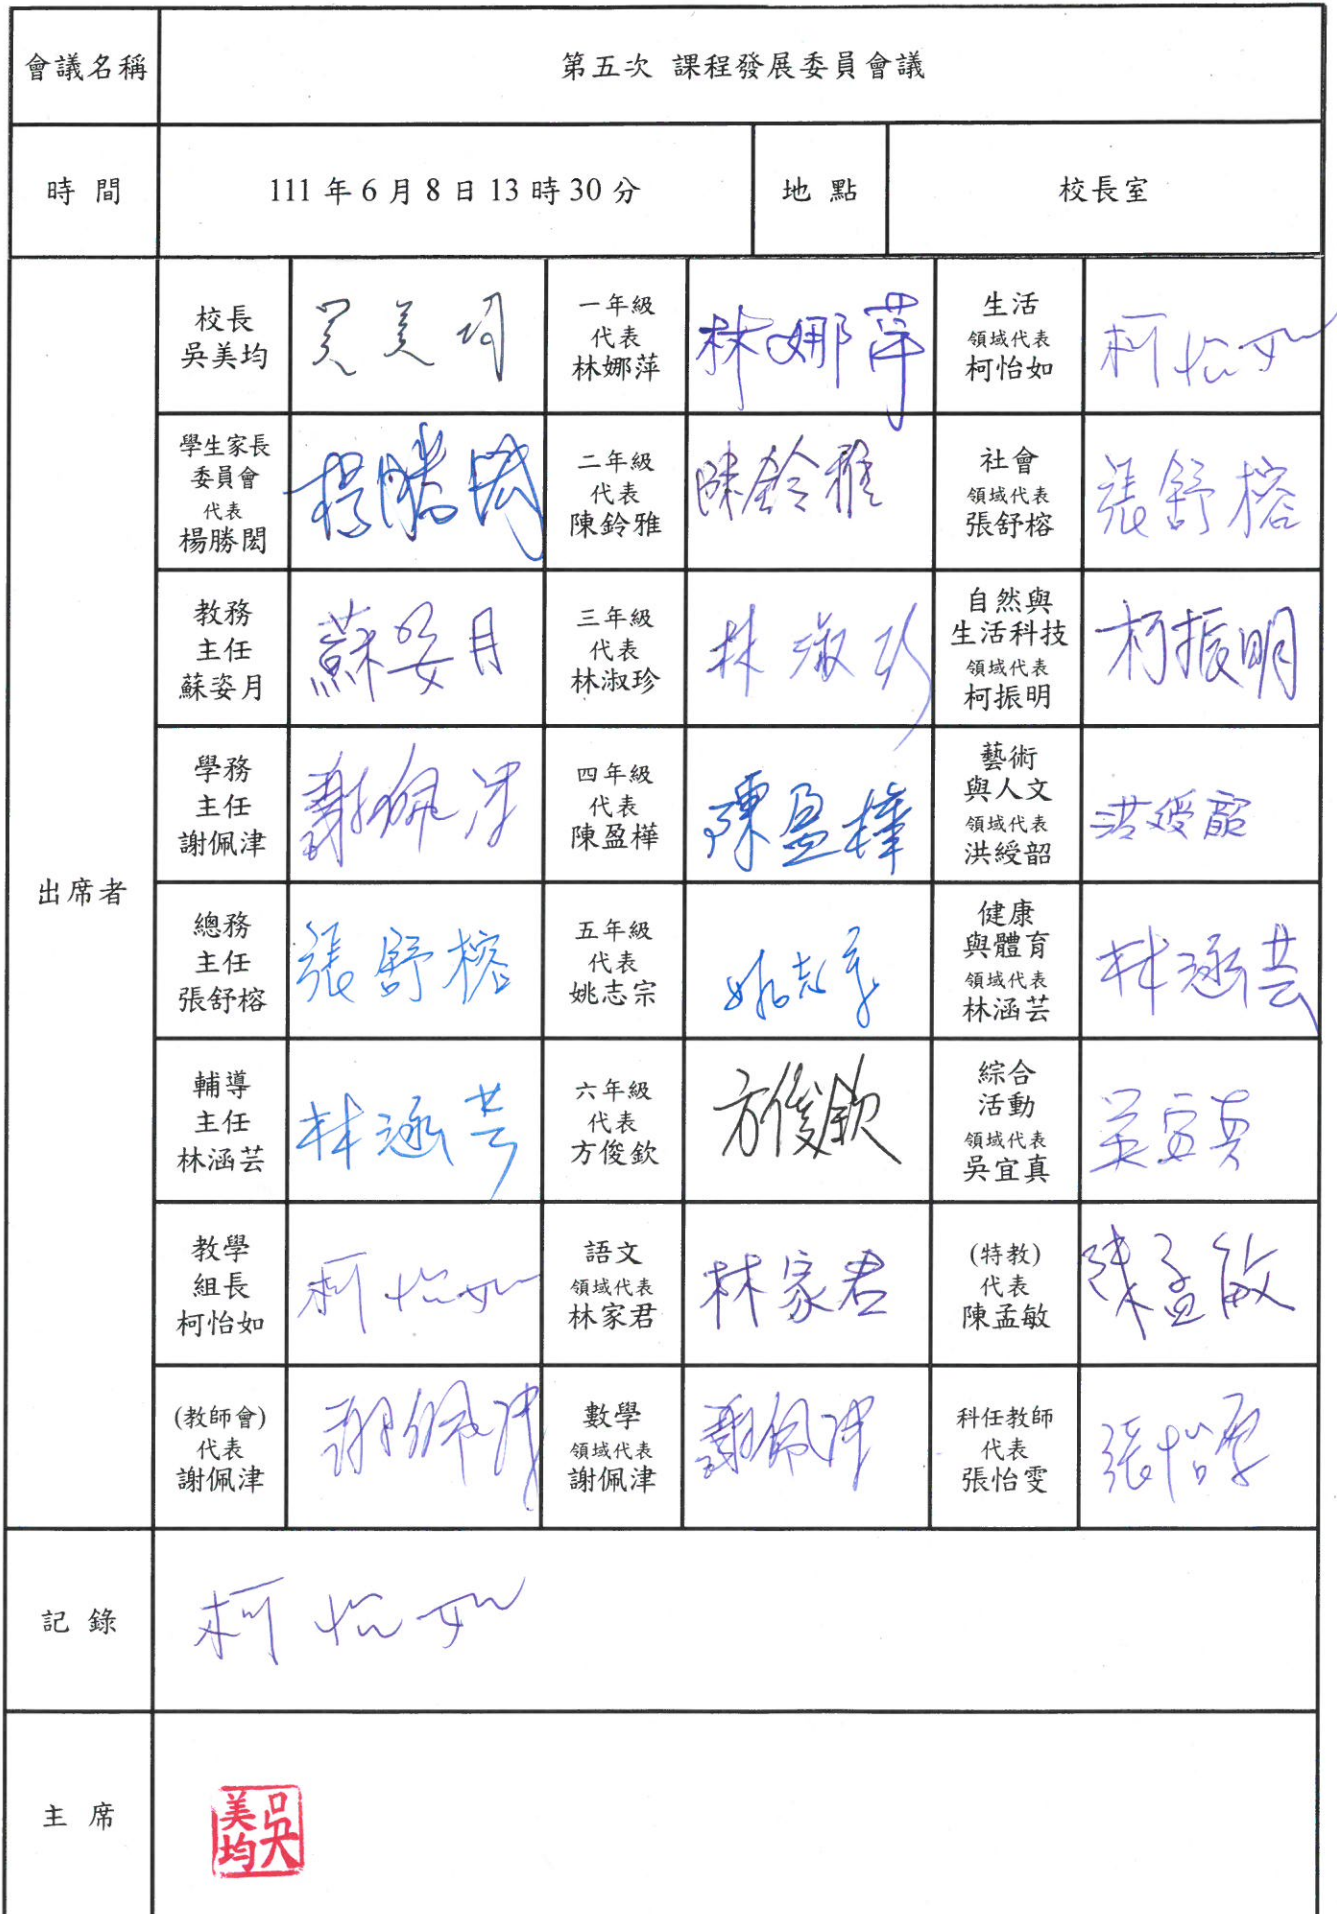 會議名稱 第五次 課程發展委員會議
時 間 111 年 6 月 8 日 13 時 30 分 地 點 校長室
出席者
校長
吳美均
吳美均
一年級
代表
林娜萍
林娜萍
生活
領域代表
柯怡如
柯怡如
學生家長
委員會
代表
楊勝閎
楊勝閎
二年級
代表
陳鈴雅
陳鈴雅
社會
領域代表
張舒榕
張舒榕
教務
主任
蘇姿月
蘇姿月
三年級
代表
林淑珍
林淑珍
自然與
生活科技
領域代表
柯振明
柯振明
學務
主任
謝佩津
謝佩津
四年級
代表
陳盈樺
陳盈樺
藝術
與人文
領域代表
洪綬韶
洪綬韶
總務
主任
張舒榕
張舒榕
五年級
代表
姚志宗
姚志宗
健康
與體育
領域代表
林涵芸
林涵芸
輔導
主任
林涵芸
林涵芸
六年級
代表
方俊欽
方俊欽
綜合
活動
領域代表
吳宜真
吳宜真
教學
組長
柯怡如
柯怡如
語文
領域代表
林家君
林家君
(特教)
代表
陳孟敏
陳孟敏
(教師會)
代表
謝佩津
謝佩津
數學
領域代表
謝佩津
謝佩津
科任教師
代表
張怡雯
張怡雯
記 錄 柯怡如
主 席 吳美均